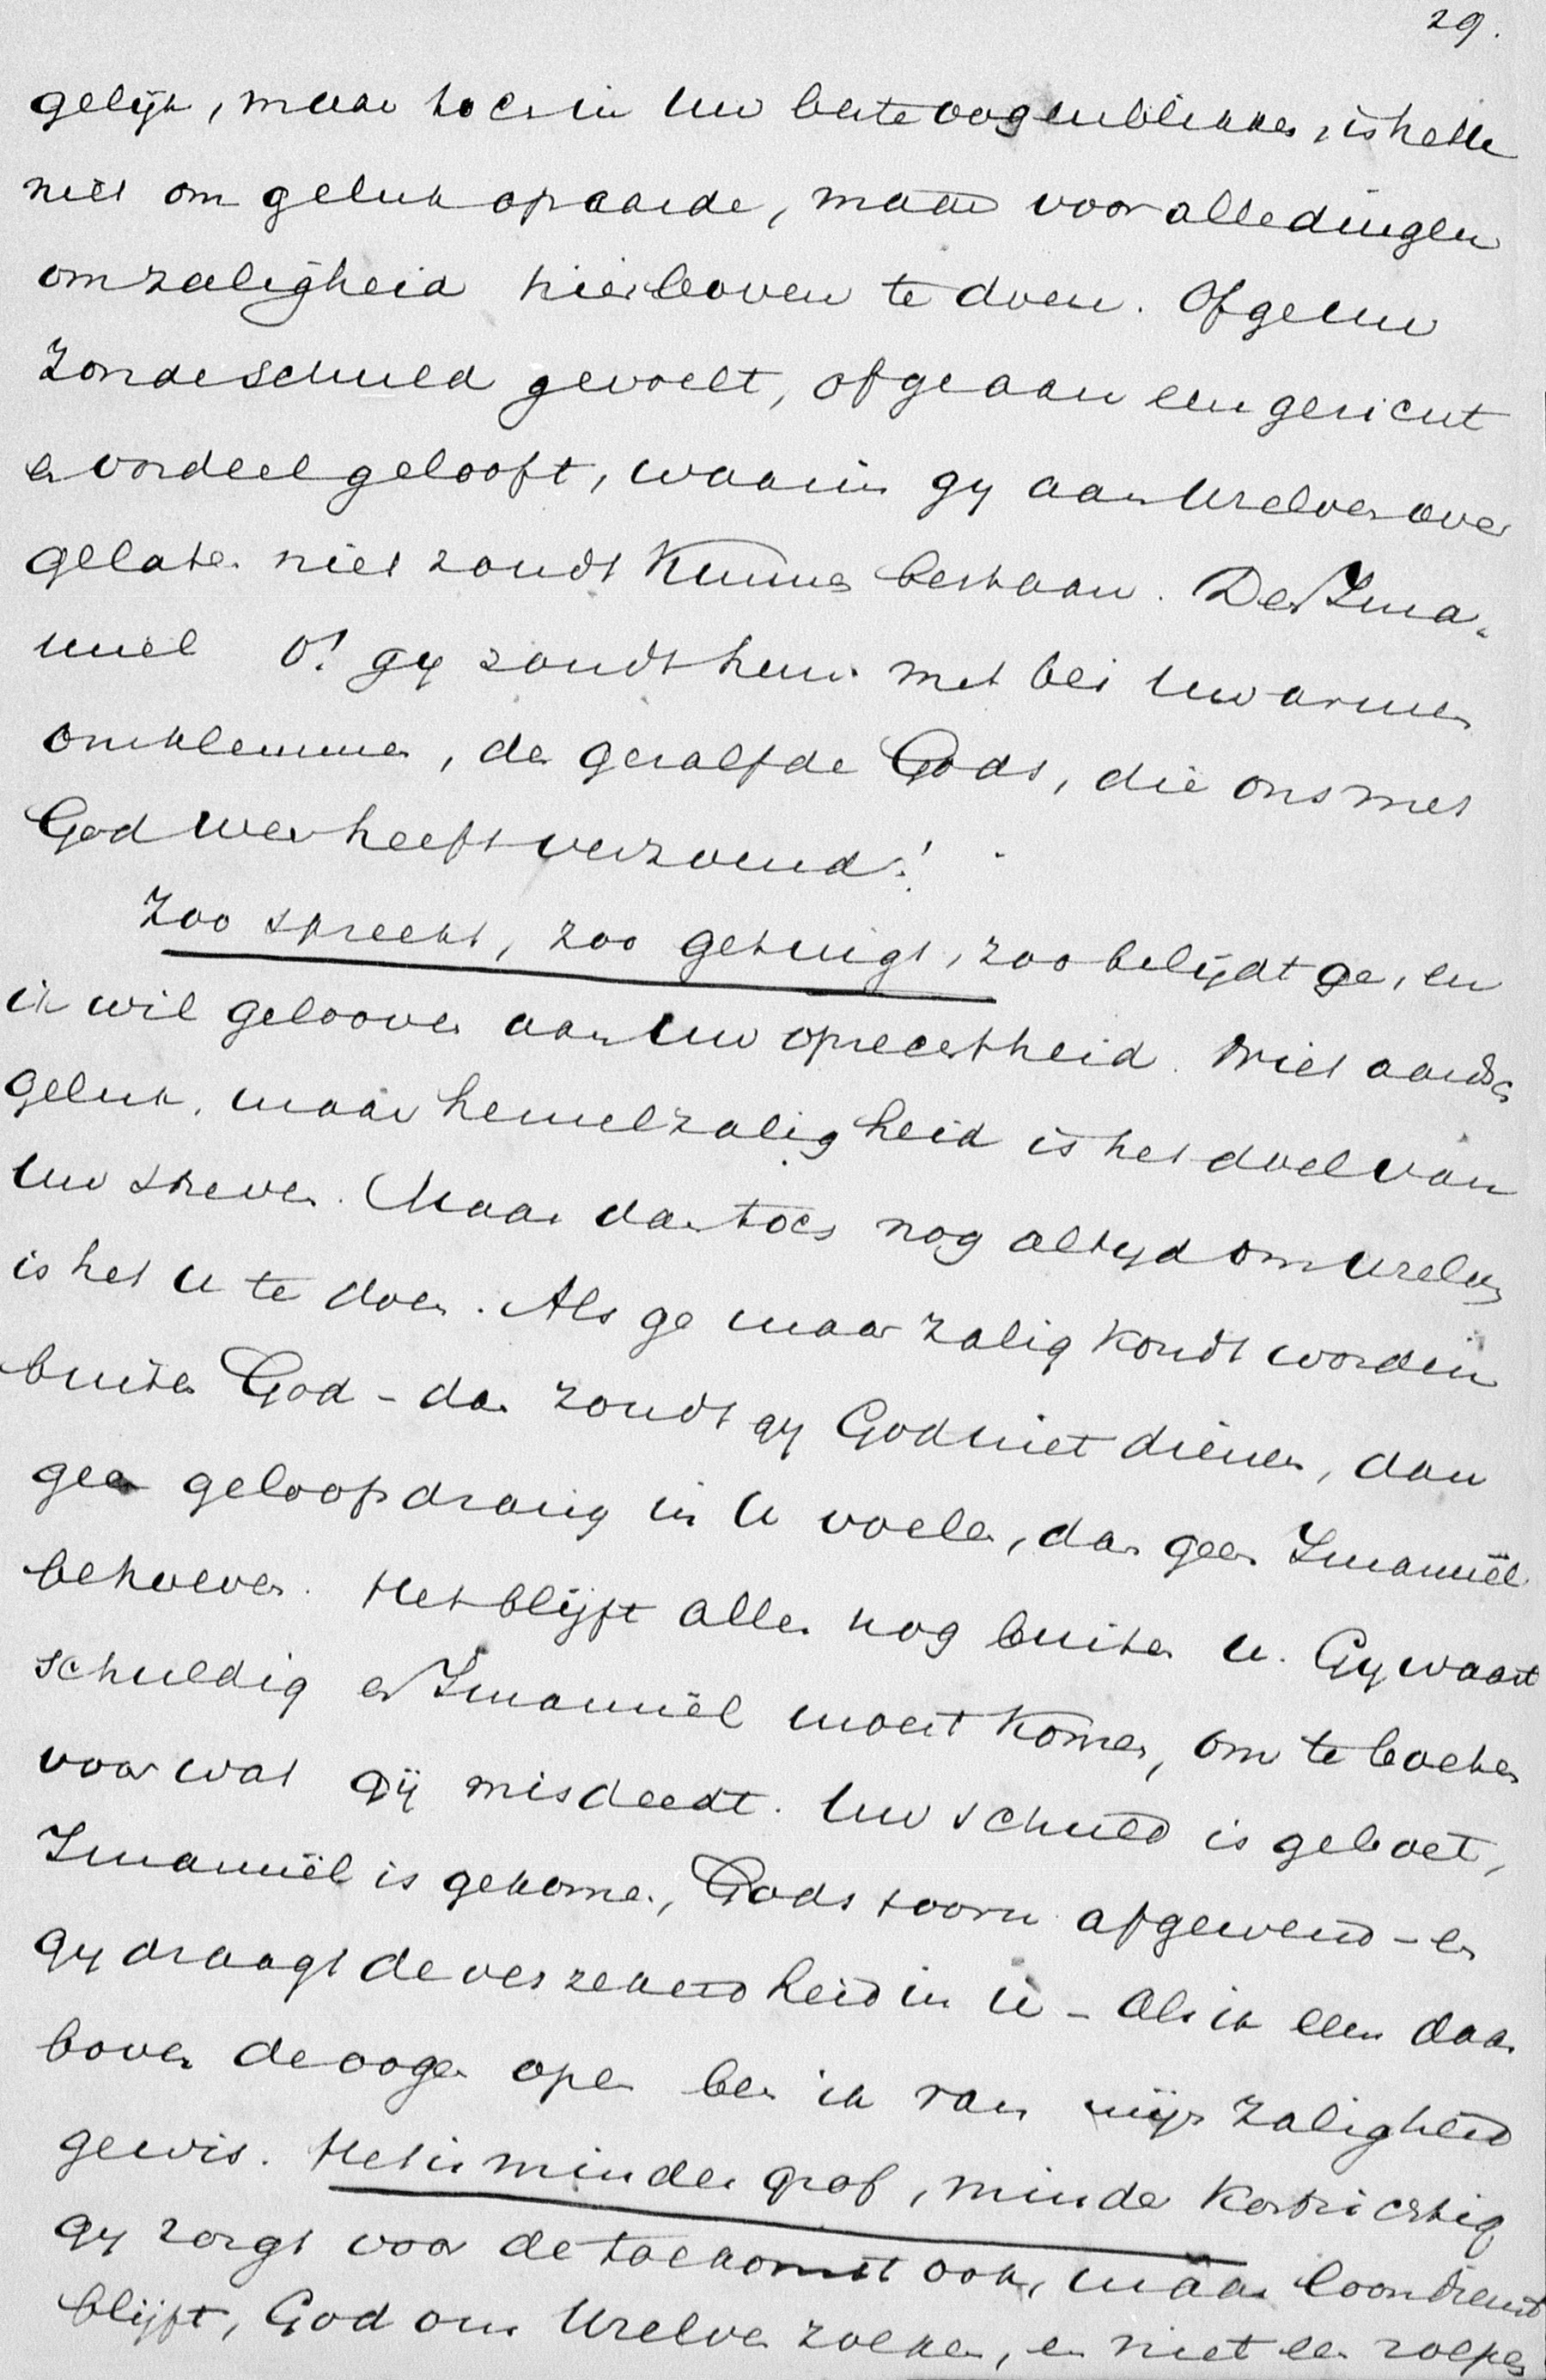 29.
gelijk, maar toch in Uw beste oogenblikken, is het U
niet om geluk op aarde, maar voor alle dingen
om zaligheid hierboven te doen. Of ge Uw
zondeschuld gevoelt, of ge aan een gericht
en oordeel gelooft, waarin gy aan Uzelven over
gelaten niet zoudt kunnen bestaan. Den Ima-
nuel o! gy zoudt hem met bei Uw armen
omklemmen, de gezalfde Gods, die ons met
God weer heeft verzoend!
Zoo spreekt, zoo getuigt, zoo belijdt ge, en
ik wil gelooven aan Uw oprechtheid. Niet aardsch
geluk, maar hemelzaligheid is het doel van
Uw streven. Maar dan toch nog altyd om Uzelven
is het U te doen. Als ge maar zalig kondt worden
buiten God - dan zoudt gy God niet dienen, dan
geen geloofsdrang in U voelen, dan geen Imanuël
behoeven. Het blijft alles nog buiten U. Gy waart
schuldig en Imanuël moest komen, om te boeten
voor wat gij misdeedt. Uw schuld is geboet,
Imanuël is gekomen, Gods toorn afgewend - en
gy draagt de verzekerdheid in U - Als ik eens daar
boven de oogen open ben ik van mijn zaligheid
gewis. Het is minder grof, minder kortzichtig
gy zorgt voor de toekomst ook, maar loondienst
blijft, God om Uzelven zoeken, en niet een zoeken